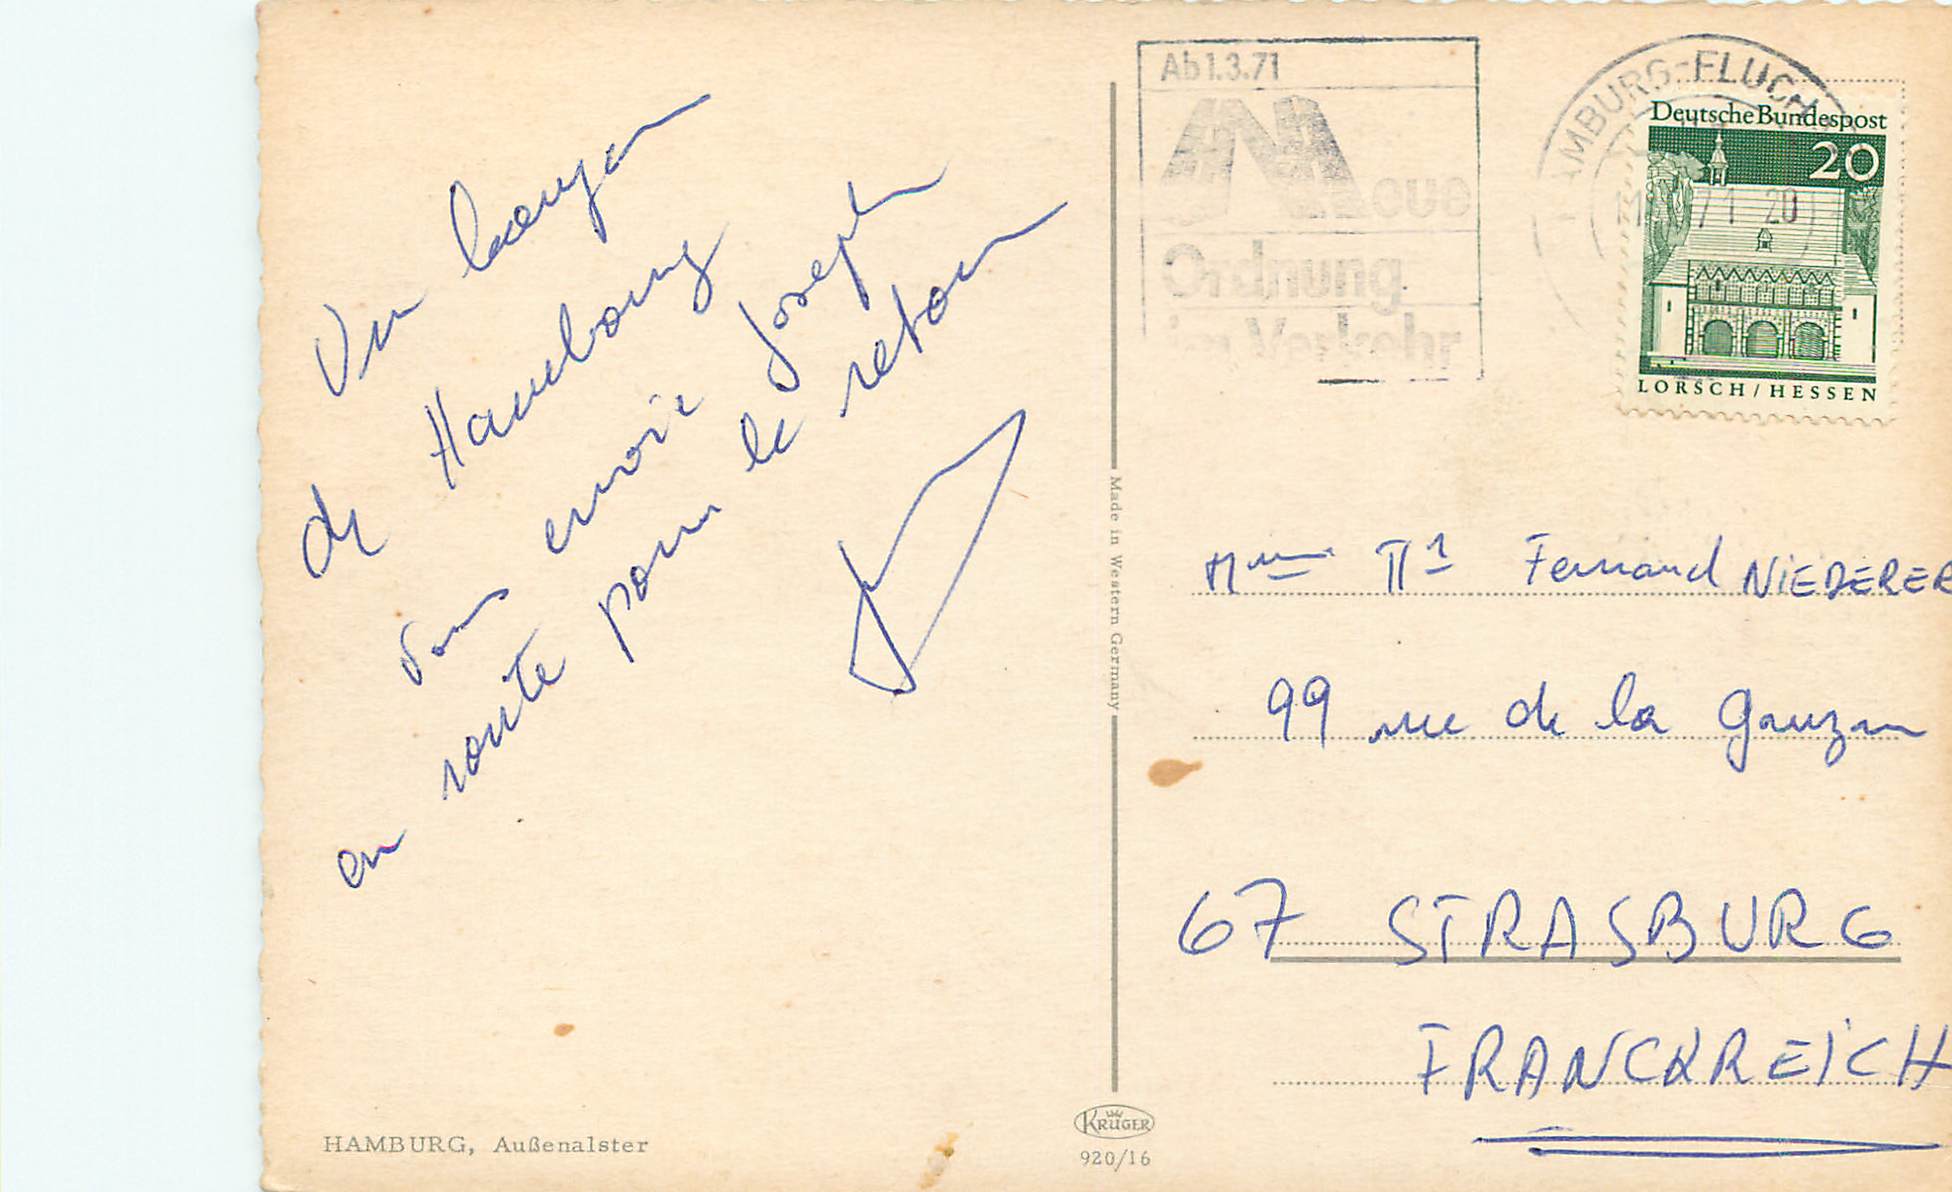 Un bonjour
de Hambourg
vous envoie Joseph
en route pour le retour
Ab 1.3.71
Neue
Ordnung
im Verkehr
HAMBURG-FLUGH
71 20
Deutsche Bundespost
20
LORSCH / HESSEN
Made in Western Germany
Fernand NIEDERER
99 rue de la Ganzau
67 STRASBURG
FRANCKREICH
HAMBURG, Außenalster
KRÜGER
920/16